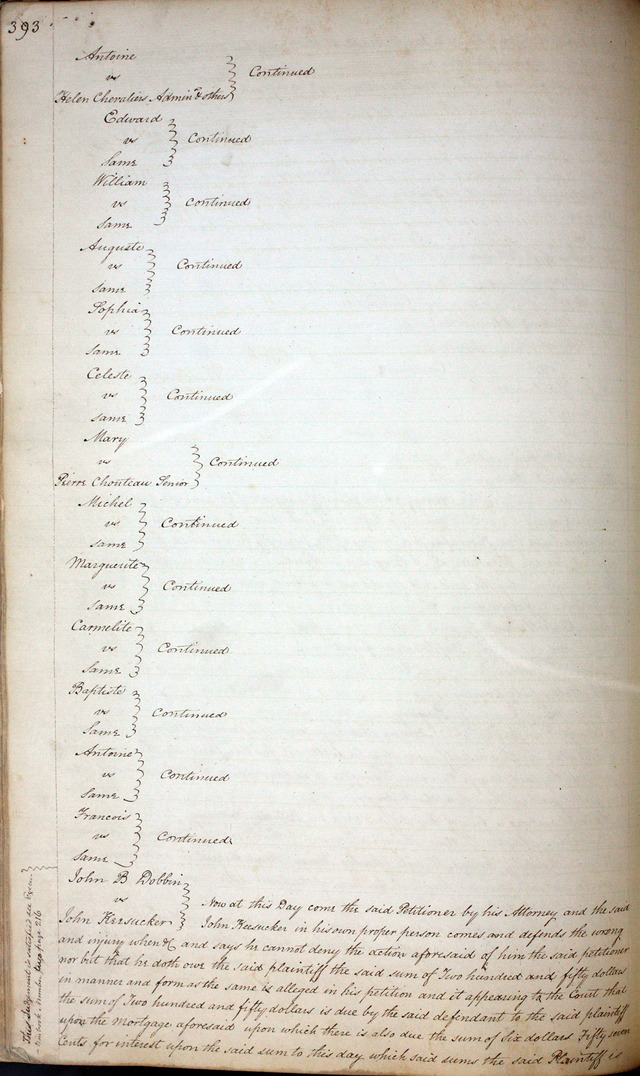 393
Antoine
vs Continued
Helen Chevaliers Admin.r & others
Edward
vs Continued
Same
William
vs Continued
Same
Auguste
vs Continued
Same
Sophia
vs Continued
Same
Celeste
vs Continued
Same
Mary
vs Continued
Pierre Chouteau Senior
Michel
vs Continued
Same
Marguerite
vs Continued
Same
Carmelite
vs Continued
Same
Baptiste
vs Continued
Same
Antoine
vs Continued
Same
Francois
vs Continued
Same
John B Dobbin
vs Now at this Day come the said Petitioner by his Attorney and the said
John Keesucker John Keesucker in his own proper person comes and defends the wrong
and injury when &C and says he cannot deny the action aforesaid of him the said petitioner
nor but that he doth owe the said plaintiff the said sum of Two hundred and fifty dollars
in manner and form as the same is alleged in his petition and it appearing to the Court that
the sum of Two hundred and fifty dollars is due by the said defendant to the said plaintiff
upon the Mortgage aforesaid upon which there is also due the sum of Six dollars Fifty seven
Cents for interest upon the said sum to this day which said sums the said Plaintiff is
This Judgment is satisfied see
number two page 216